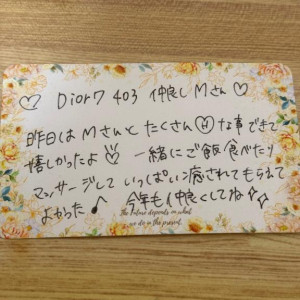 ♡ Dior7 403 仲良しMさん ♡
昨日はMさんとたくさんⒽな事できて
嬉しかったよ♡ 一緒にご飯食べたり
マッサージして いっぱい癒されてもらえて
よかった♪ 今年も仲良くしてね☆☆
the future depends on what
we do in the present